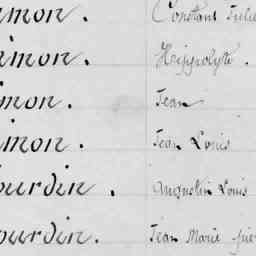 imon. Constant Jules
imon. Hippolyte.
imon. Jean
imon. Jean Louis
ourdin. Augustin Louis
ourdin. Jean Marie